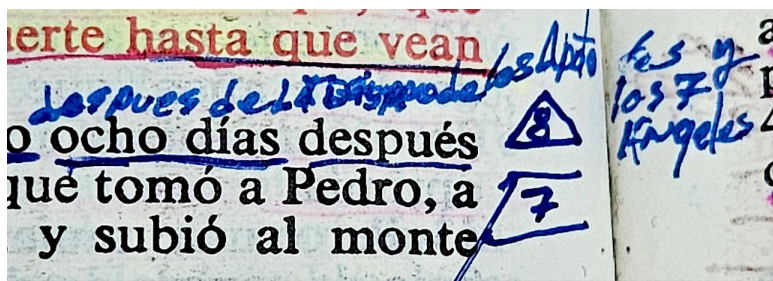 erte hasta que vean
despues de La Dispe de los Apto
les y
los 7
Angeles
o ocho días después
8
que tomó a Pedro, a
7
y subió al monte